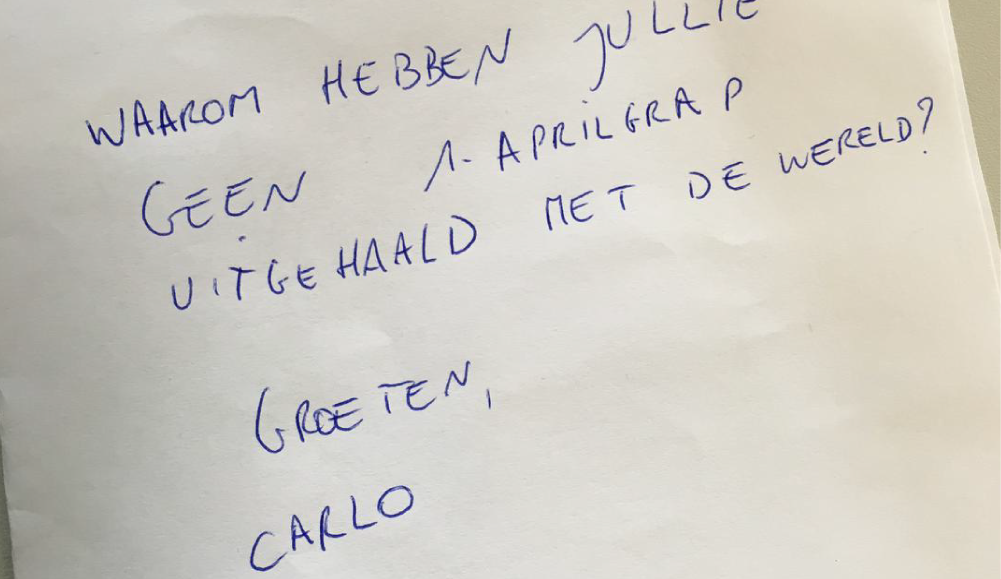 WAAROM HEBBEN JULLIE
GEEN 1-APRILGRAP
UITGEHAALD MET DE WERELD?
GROETEN,
CARLO